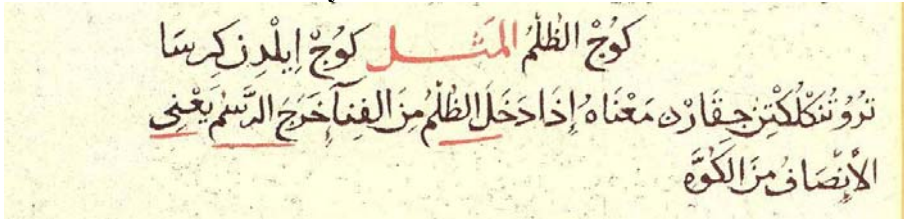 كُوجْ الظُلْمُ المَثَل كُوجْ اِيلْدِن كِرسَا
تُرُو تُنكْلُكْتِن جِقَارْ مَعْنَاه إِذَا دَخَلَ الظُلْمُ مِنَ الفِنَآ خَرَجَ الرَّسْمُ يَعْنِى
الأِنْصَافُ مِنَ الكُوَّةِ